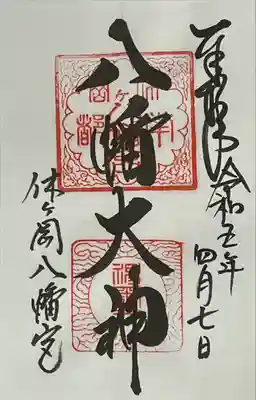 奉拝
令和五年
四月七日
八幡大神
休ヶ岡八幡宮